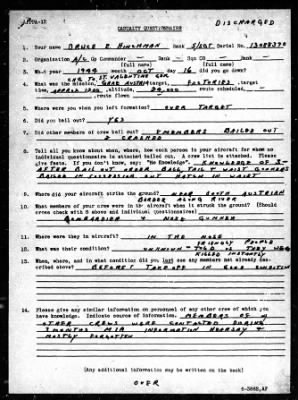 DISCHARGED
CASUALTY QUESTIONNAIRE
1. Your name BRUCE E HINCHMAN Rank S/SGT Serial No. 13088370
2. Organization A/C Gp Commander Rank Sqn CO Rank
(full name) (full name)
3. What year 1944 month OCT day 16 did you go down?
What was the mission, GRAZ AUSTRIA FACTORIES, target,
time, altitude, route scheduled,
route flown
4. Where were you when you left formation? OVER TARGET
5. Did you bail out? YES
6. Did other members of crew bail out? MEMBERS BAILED OUT
2 CRASHED
7. Tell all you know about when, where, how each person in your aircraft for whom no
individual questionnaire is attached bailed out. A crew list is attached. Please
give facts. If you don't know, say: "No Knowledge". KNOWLEDGE OF 3-
AFTER BAIL OUT ORDER BALL TAIL & WAIST GUNNERS
BAILED IN SUCCESSION OUT HATCH IN WAIST
9. Where did your aircraft strike the ground? NEAR SOUTH AUSTRIAN
BORDER ALONG RIVER
10. What members of your crew were in the aircraft when it struck the ground? (Should
cross check with 8 above and individual questionnaires)
BOMBARDIER & NOSE GUNNER
11. Where were they in aircraft? IN THE NOSE
12. What was their condition? UNKNOWN - TOLD BY FRIENDLY PEOPLE THEY WERE
KILLED INSTANTLY
13. When, where, and in what condition did you last see any members not already des-
cribed above? BEFORE TAKE OFF IN GOOD CONDITION
14. Please give any similar information on personnel of any other crew of which you
have knowledge. Indicate source of information. MEMBERS OF
OTHER CREWS WERE CONTACTED DURING
3 MONTHS MIA INFORMATION HEARSAY &
MOSTLY FORGOTTEN
(Any additional information may be written on the back)
OVER
6-3862,AF